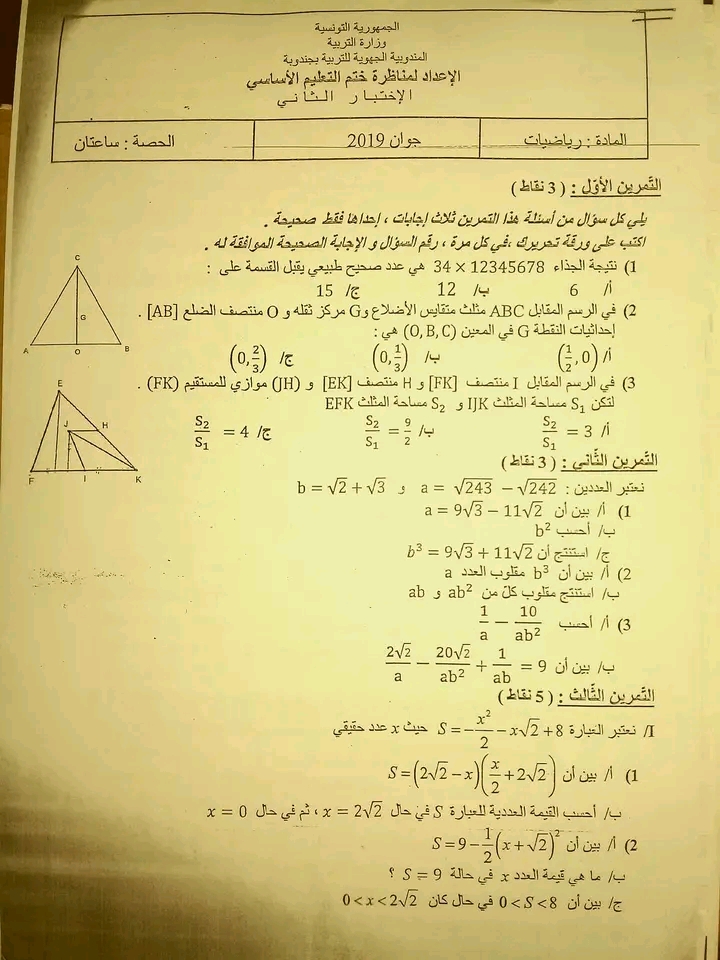 الجمهورية التونسية
وزارة التربية
المندوبية الجهوية للتربية بجندوبة
الإعداد لمناظرة ختم التعليم الأساسي
الإختبار الثاني
المادة : رياضيات
جوان 2019
الحصة : ساعتان
التّمرين الأوّل : ( 3 نقاط )
يلي كل سؤال من أسئلة هذا التمرين ثلاث إجابات ، إحداها فقط صحيحة .
اكتب على ورقة تحريرك ،في كل مرة ، رقم السؤال و الإجابة الصحيحة الموافقة له .
1) نتيجة الجذاء 12345678 × 34 هي عدد صحيح طبيعي يقبل القسمة على :
أ/ 6 ب/ 12 ج/ 15
2) في الرسم المقابل ABC مثلث متقايس الأضلاع وG مركز ثقله و O منتصف الضلع [AB] .
إحداثيات النقطة G في المعين (O, B, C) هي :
أ/ (1/2, 0) ب/ (0, 1/3) ج/ (0, 2/3)
C
G
A O B
3) في الرسم المقابل I منتصف [FK] و H منتصف [EK] و (JH) موازي للمستقيم (FK) .
لتكن S₁ مساحة المثلث IJK و S₂ مساحة المثلث EFK
أ/ S₂/S₁ = 3 ب/ S₂/S₁ = 9/2 ج/ S₂/S₁ = 4
E
J H
F I K
التّمرين الثّاني : ( 3 نقاط )
نعتبر العددين : a = √243 − √242 و b = √2 + √3
1) أ/ بين أن a = 9√3 − 11√2
ب/ أحسب b²
ج/ استنتج أن b³ = 9√3 + 11√2
2) أ/ بين أن b³ مقلوب العدد a
ب/ استنتج مقلوب كلّ من ab² و ab
3) أ/ أحسب 1/a − 10/ab²
ب/ بين أن 2√2/a − 20√2/ab² + 1/ab = 9
التّمرين الثّالث : ( 5 نقاط )
I/ نعتبر العبارة S = −x²/2 − x√2 + 8 حيث x عدد حقيقي
1) أ/ بين أن S = (2√2 − x)(x/2 + 2√2)
ب/ أحسب القيمة العددية للعبارة S في حال x = 2√2 ، ثم في حال x = 0
2) أ/ بين أن S = 9 − 1/2(x + √2)²
ب/ ما هي قيمة العدد x في حالة S = 9 ؟
ج/ بين أن 0 < S < 8 في حال كان 0 < x < 2√2